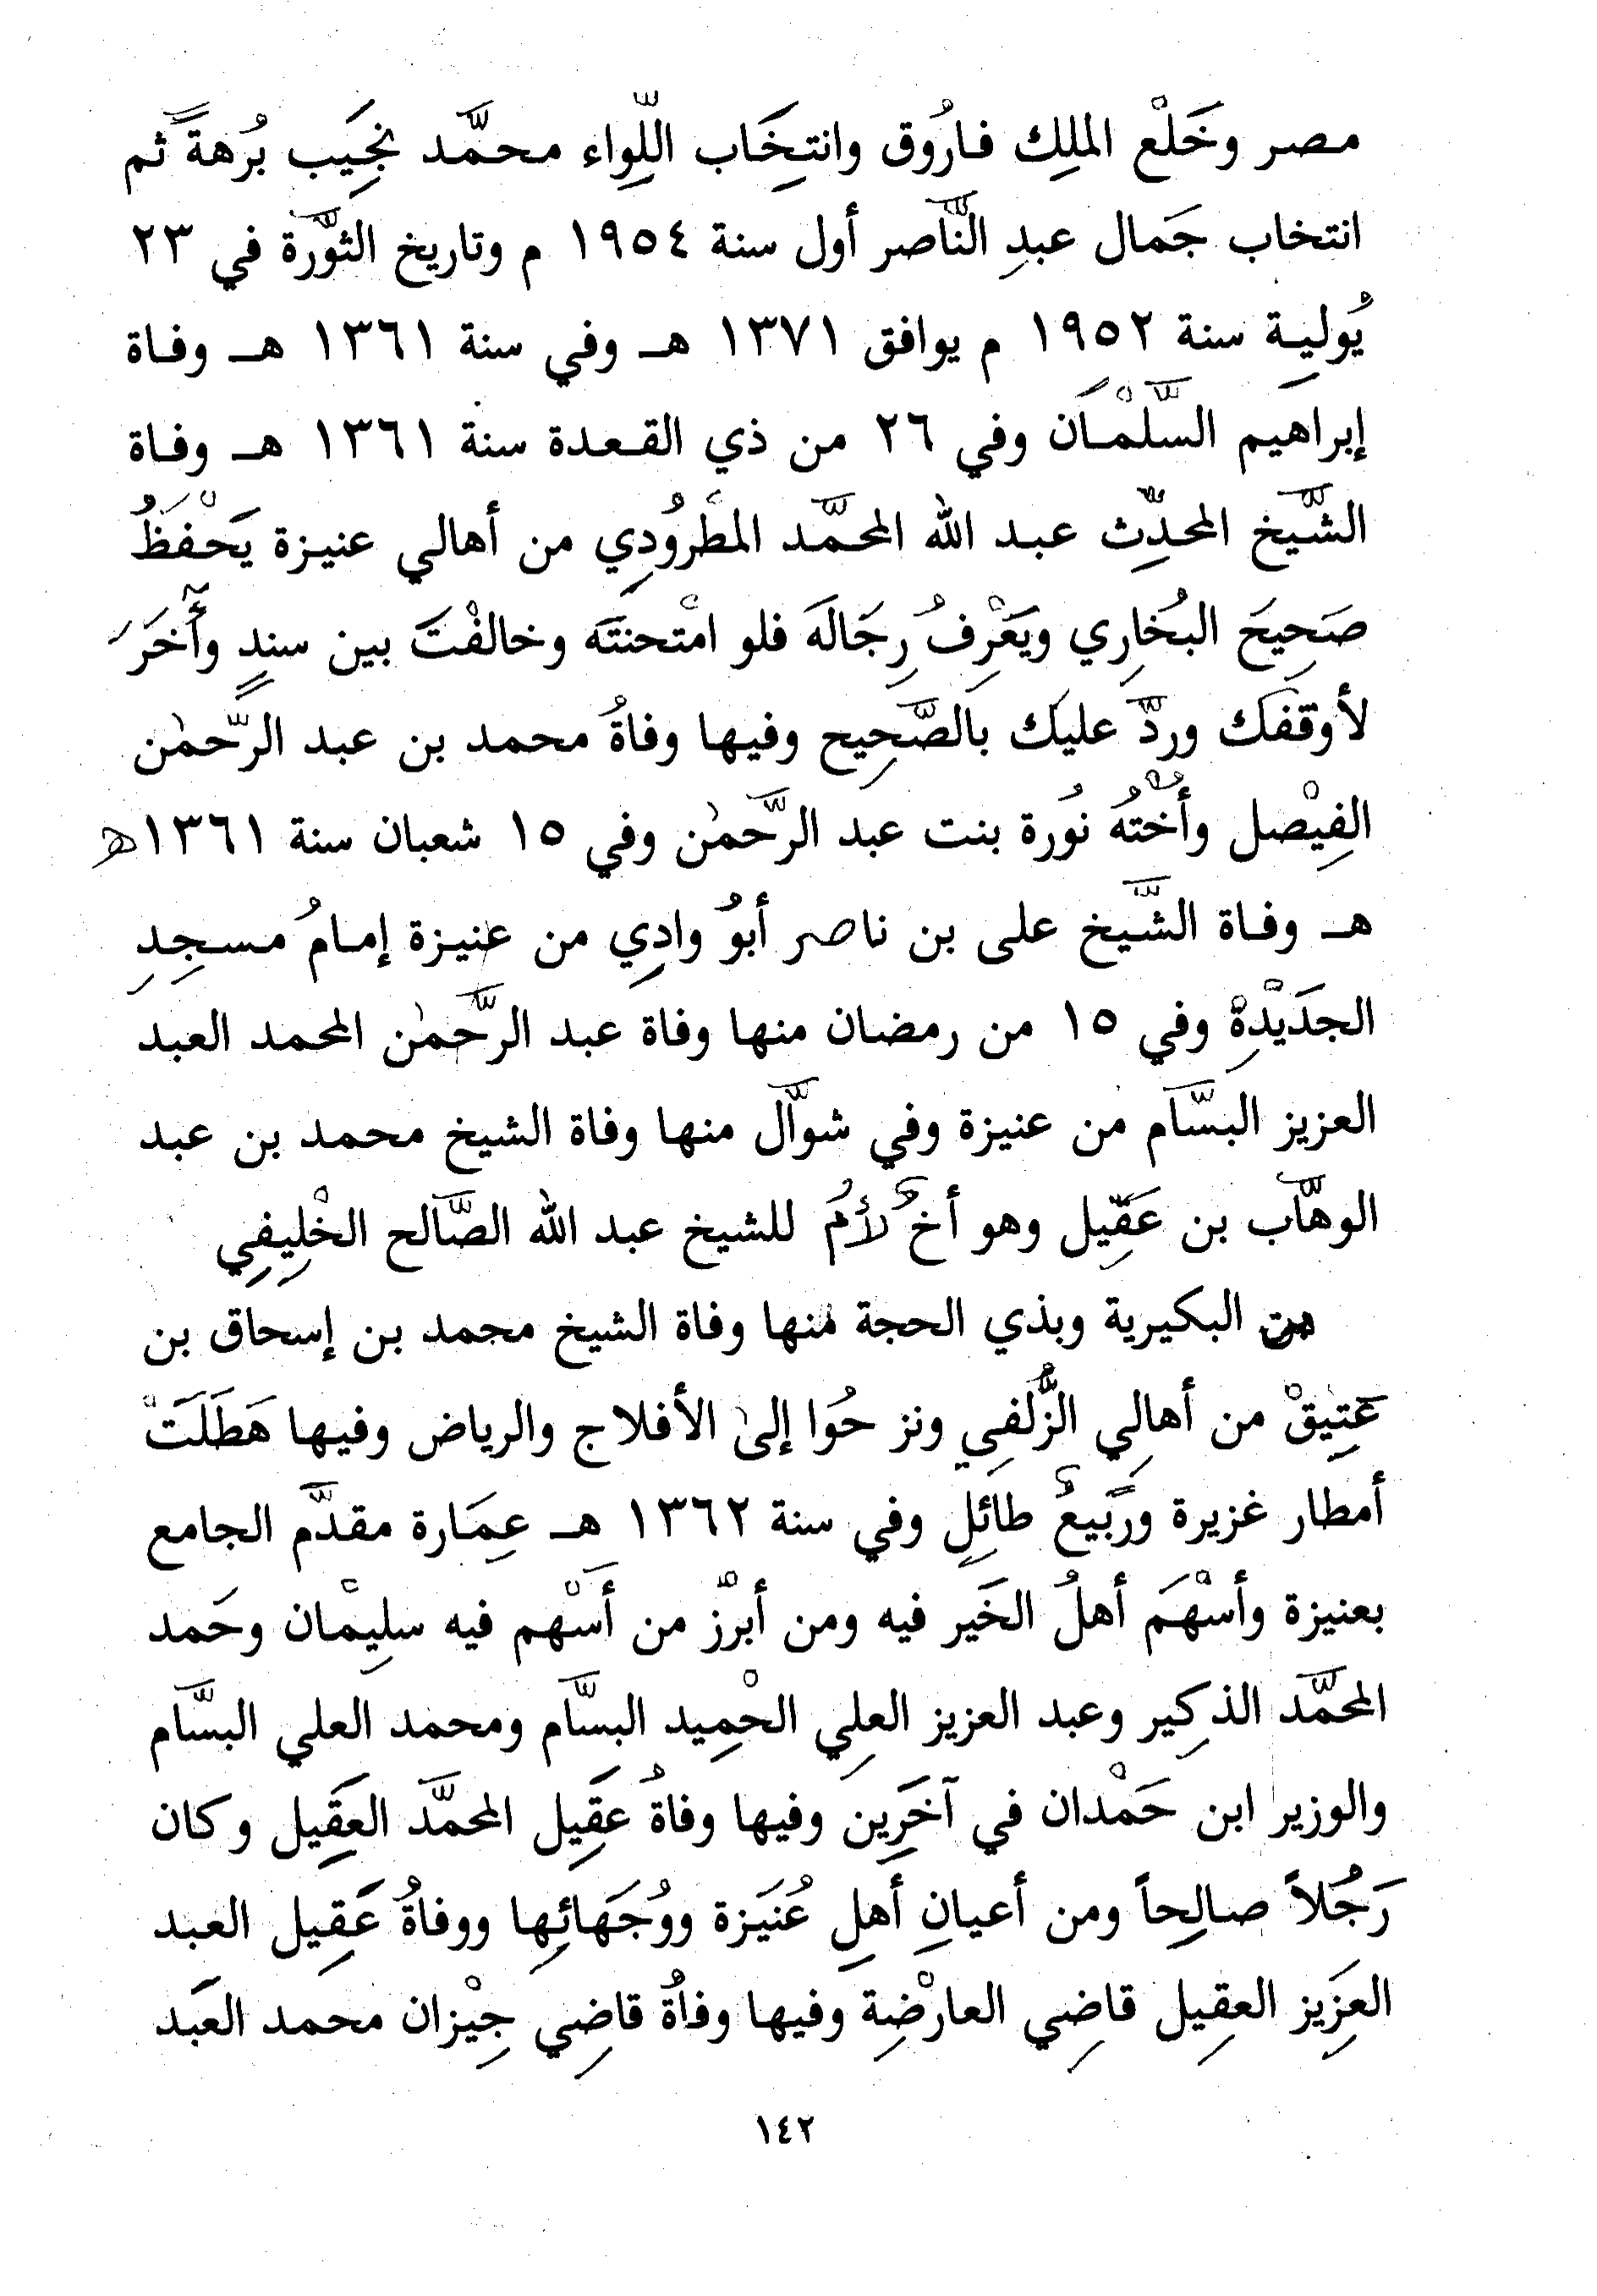 مصر وخَلْع الملِك فارُوق وانتخَاب اللِّواء محمَّد نجِيَب بُرهةً ثم
انتخاب جَمال عبدِ النَّاصر أول سنة ١٩٥٤ م وتاريخ الثَّورة في ٢٣
يُوليِة سنة ١٩٥٢ م يوافق ١٣٧١ هـ وفي سنة ١٣٦١ هـ وفاة
إبراهيم السَّلْمَان وفي ٢٦ من ذي القعدة سنة ١٣٦١ هـ وفاة
الشَّيخ المحدِّث عبد الله المحمَّد المطْرُودِي من أهالي عنيزة يَحْفَظُ
صَحِيحَ البُخارِي ويَعْرِفُ رِجَالَه فلو امْتحنتَه وخالفْتَ بين سندٍ وآخَرَ
لأوقفَك وردَّ عليكَ بالصَّحِيح وفيها وفاةُ محمد بن عبد الرَّحمٰن
الفِيْصل وأُخْتُه نُورة بنت عبد الرَّحمٰن وفي ١٥ شعبان سنة ١٣٦١هـ
هـ وفاة الشَّيخ على بن ناصر أبوُ وادِي من عنيزة إمامُ مسجِدِ
الجدَيْدِةْ وفي ١٥ من رمضان منها وفاة عبد الرَّحمٰن المحمد العبد
العزيز البسَّام من عنيزة وفي شوَّال منها وفاة الشيخ محمد بن عبد
الوهَّاب بن عَقِّيل وهو أخٌ لأمُ للشيخ عبد الله الصَّالح الخْلِيفِي
من البكيرية وبذي الحجة منها وفاة الشيخ محمد بن إسحاق بن
عَتِيقْ من أهالِي الزُّلفِي ونز حُوا إلىٰ الأفلاج والرياض وفيها هَطَلَتْ
أمطار غزيرة ورَبيعٌ طائلٍ وفي سنة ١٣٦٢ هـ عِمَارة مقدَّم الجامع
بعنيزة وأسْهَم أهلُ الخَير فيه ومن أبرْز من أسْهم فيه سليْمان وحَمد
المحمَّد الذكِير وعبد العزيز العلِي الحْمِيد البسَّام ومحمد العلي البسَّام
والوزير ابن حَمْدان في آخَرِين وفيها وفاةُ عقِيل المحمَّد العَقِيل وكان
رَجُلاً صالِحاً ومن أعيانِ أهلِ عُنَيزة ووُجَهَائِها ووفاةُ عَقِيل العبد
العزِيَز العقِيل قاضِي العارْضِة وفيها وفاةُ قاضِي جِيْزان محمد العبَد
١٤٢